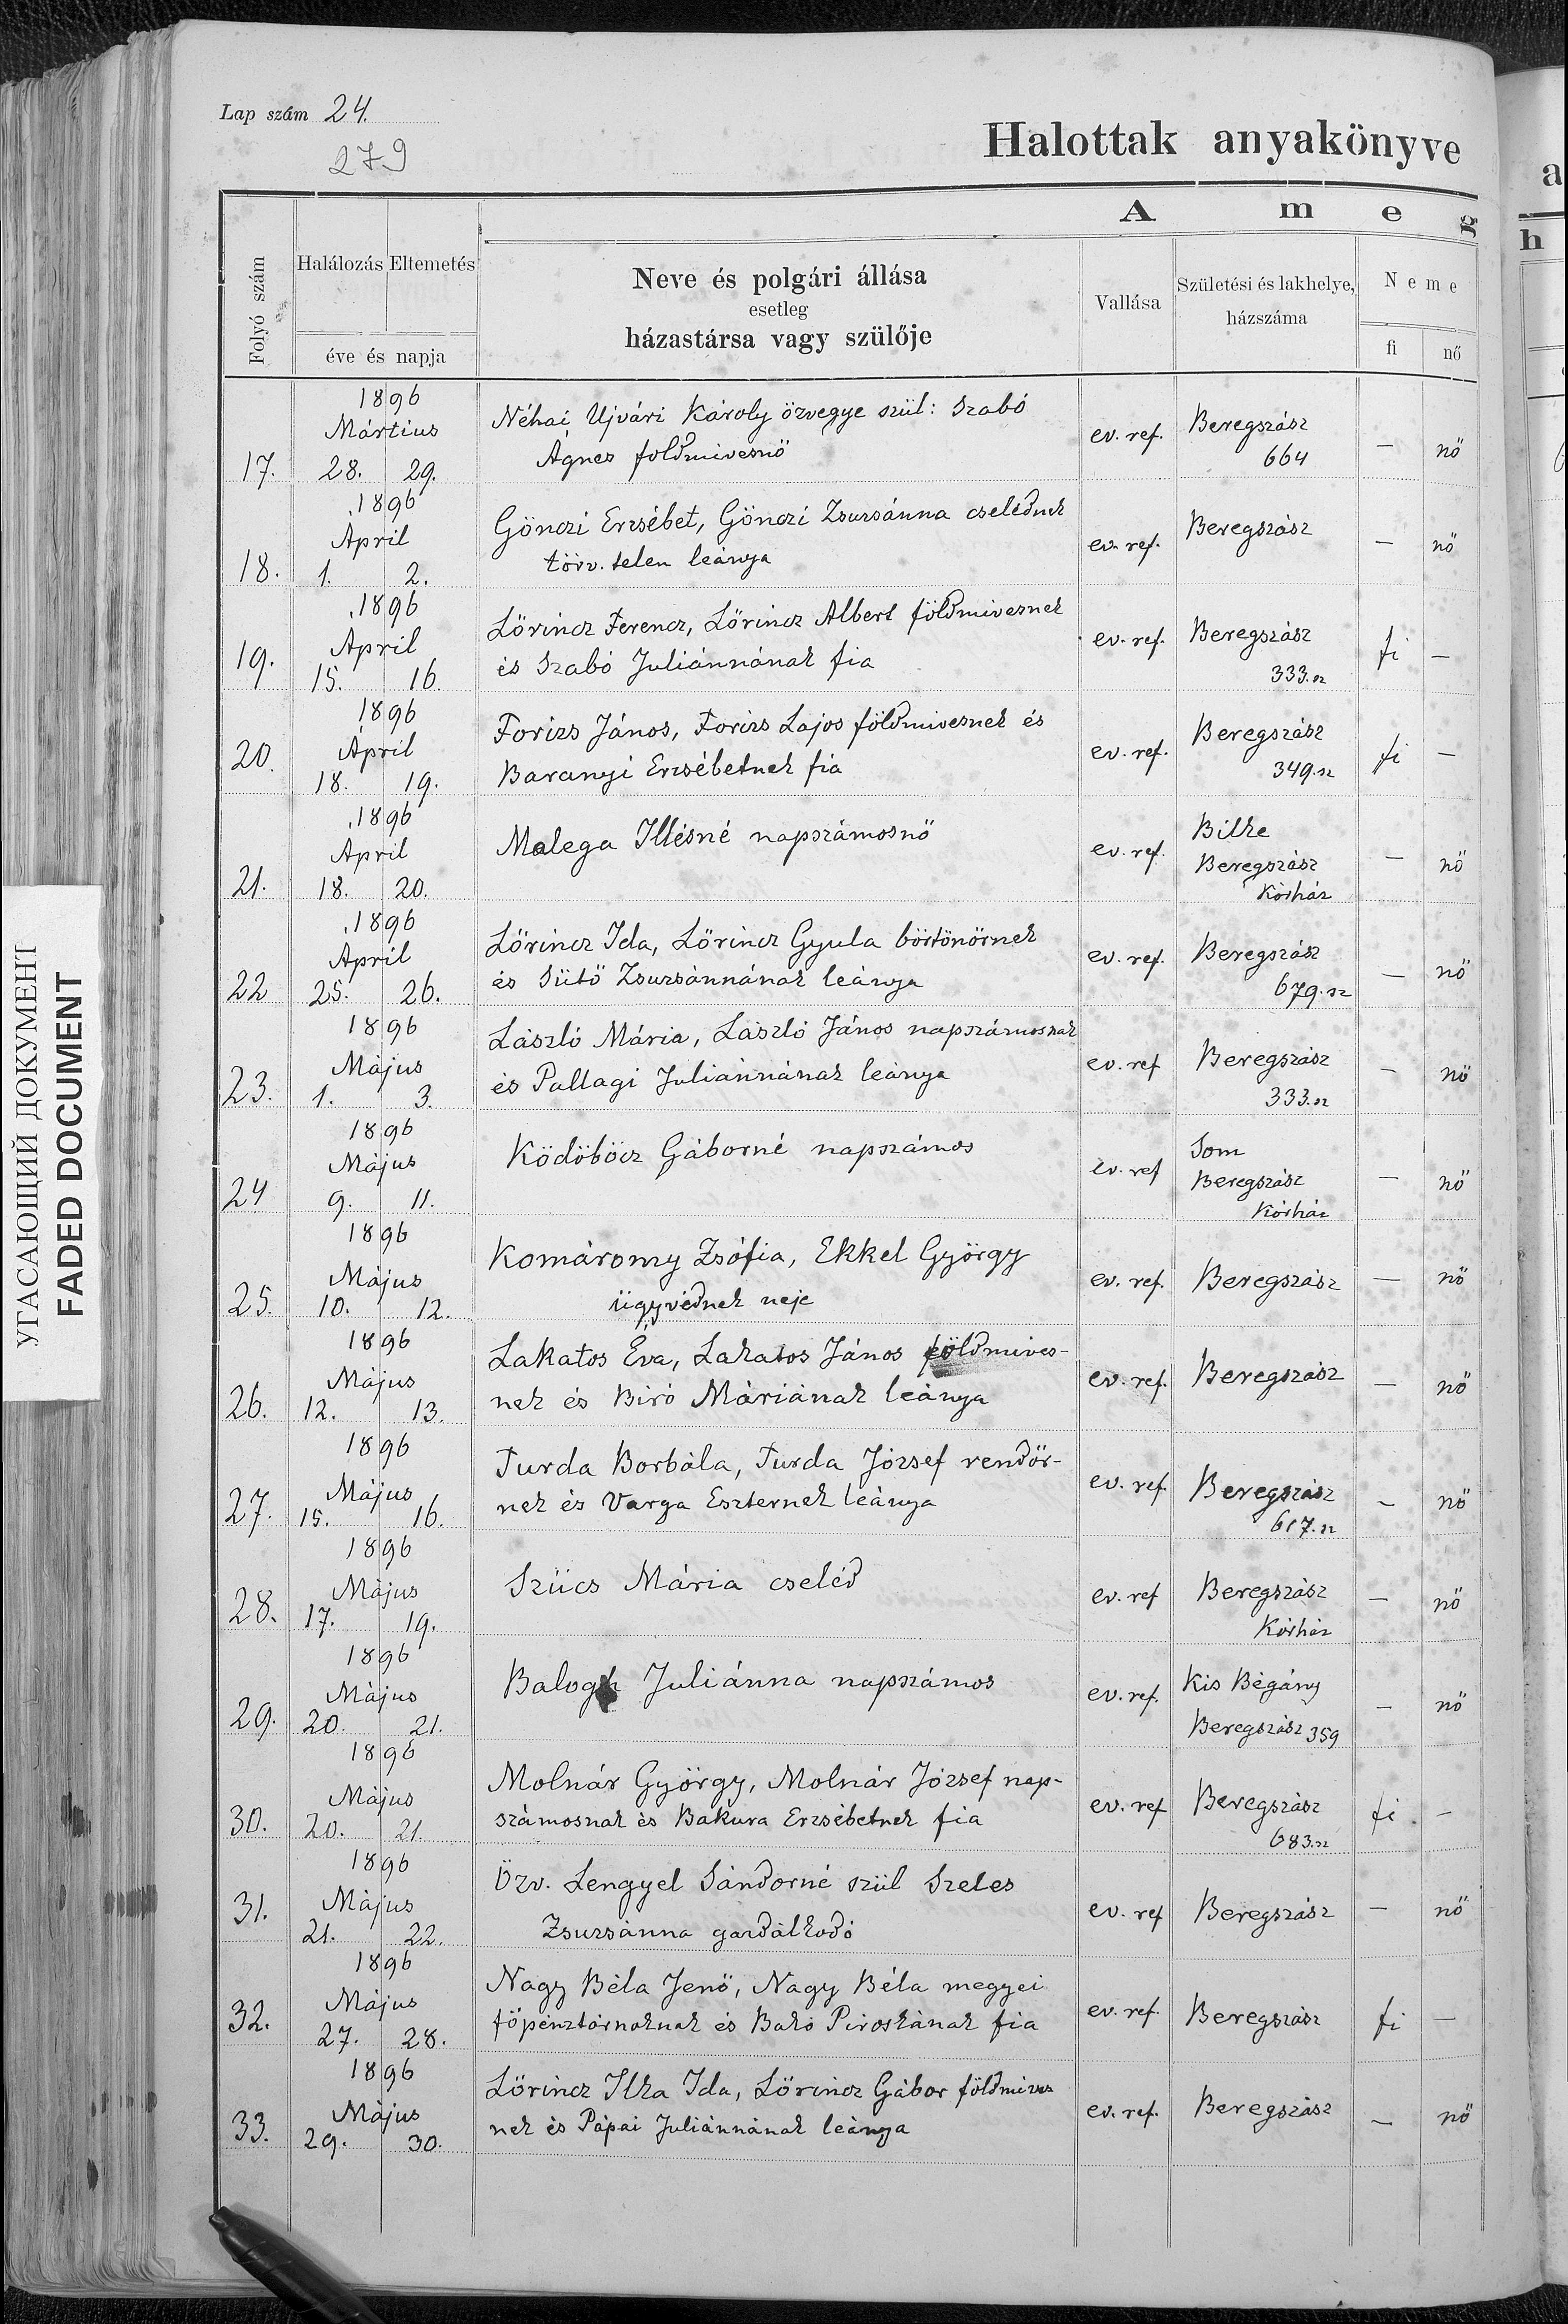 Lap szám 24.
279
Halottak anyakönyve
A m e g
Folyó szám
Halálozás Eltemetés
éve és napja
Neve és polgári állása
esetleg
házastársa vagy szülője
Vallása
Születési és lakhelye,
házszáma
Neme
fi nő
1896
Mártius
17. 28. 29.
Néhai Ujvári Károly özvegye szül: Szabó
Ágnes földmivesnö
ev. ref.
Beregszász
664
— nö
1896
April
18. 1. 2.
Gönczi Erzsébet, Gönczi Zsuzsánna cselédnek
törv. telen leánya
ev. ref.
Beregszász
— nö
1896
April
19. 15. 16.
Lörincz Ferencz, Lörincz Albert földmivesnek
és Szabó Juliánnának fia
ev. ref.
Beregszász
333. sz
fi —
1896
Április
20. 18. 19.
Forizs János, Forizs Lajos földmivesnek és
Baranyi Erzsébetnek fia
ev. ref.
Beregszász
349. sz
fi —
1896
April
21. 18. 20.
Malega Illésné napszámosnö
ev. ref.
Bilke
Beregszász
Kórház
— nö
1896
April
22 25. 26.
Lörincz Ida, Lörincz Gyula börtönörnek
és Sütö Zsuzsánnának leánya
ev. ref.
Beregszász
679. sz
— nö
1896
Május
23. 1. 3.
László Mária, László János napszámosnak
és Pallagi Juliánnának leánya
ev. ref
Beregszász
333. sz
— nö
1896
Május
24 9. 11.
Ködöböcz Gáborné napszámos
ev. ref
Som
Beregszász
Kórház
— nö
1896
Május
25. 10. 12.
Komáromy Zsófia, Ekkel György
ügyvédnek neje
ev. ref.
Beregszász
— nö
1896
Május
26. 12. 13.
Lakatos Éva, Lakatos János földmives-
nek és Biró Máriának leánya
ev. ref.
Beregszász
— nö
1896
Május
27. 15. 16.
Turda Borbála, Turda József rendör-
nek és Varga Eszternek leánya
ev. ref.
Beregszász
617. sz
— nö
1896
Május
28. 17. 19.
Szücs Mária cseléd
ev. ref
Beregszász
Kórház
— nö
1896
Május
29. 20. 21.
Balogh Juliánna napszámos
ev. ref.
Kis Bégány
Beregszász 359
— nö
1896
Május
30. 20. 21.
Molnár György, Molnár József nap-
számosnak és Bakura Erzsébetnek fia
ev. ref
Beregszász
683. sz
fi —
1896
Május
31. 21. 22.
Özv. Lengyel Sándorné szül Szeles
Zsuzsánna gazdálkodó
ev. ref
Beregszász
— nö
1896
Május
32. 27. 28.
Nagy Béla Jenö, Nagy Béla megyei
föpénztárnoknak és Bakó Piroskának fia
ev. ref.
Beregszász
fi —
1896
Május
33. 29. 30.
Lörincz Ilka Ida, Lörincz Gábor földmives
nek és Pápai Juliánnának leánya
ev. ref.
Beregszász
— nö
УГАСАЮЩИЙ ДОКУМЕНТ
FADED DOCUMENT
a
h